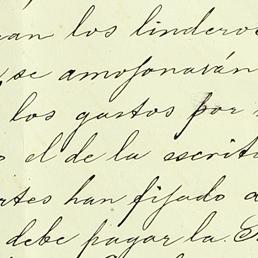 ran los linderos
se amojonarán
los gastos por
el de la escrit
rtes han fijado
debe pagar la